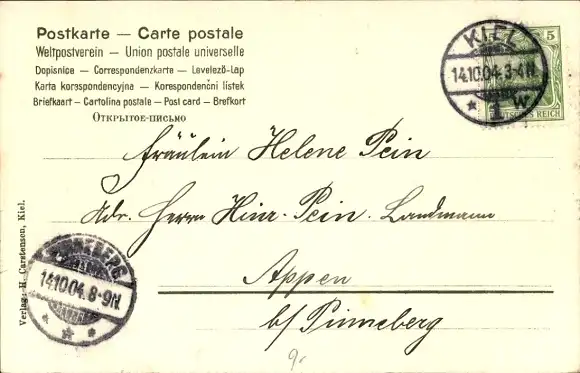 Postkarte — Carte postale
Weltpostverein — Union postale universelle
Dopisnice — Correspondenzkarte — Levelező-Lap
Karta korespondencyjna — Korespondenční lístek
Briefkaart — Cartolina postale — Post card — Brefkort
Открытое-письмо
5
DEUTSCHES REICH
KIEL
14.10.04.3-4N.
1 W
Fräulein Helene Pein
Adr. Herrn Hinr. Pein. Landmann
Appen
b/ Pinneberg
PINNEBERG
14.10.04.8-9N.
Verlag: H. Carstensen, Kiel.